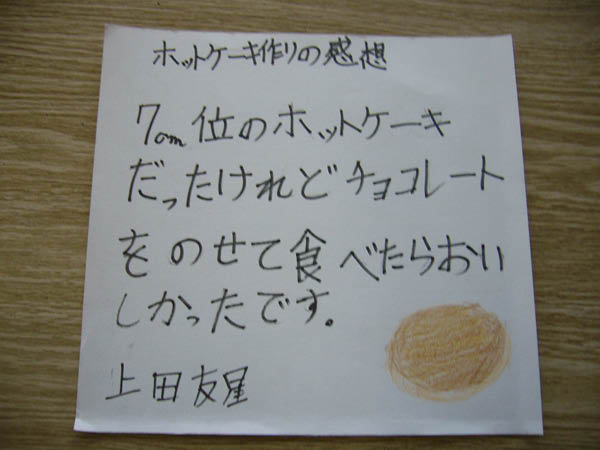 ホットケーキ作りの感想
7cm位のホットケーキ
だったけれどチョコレート
をのせて食べたらおい
しかったです。
上田友星